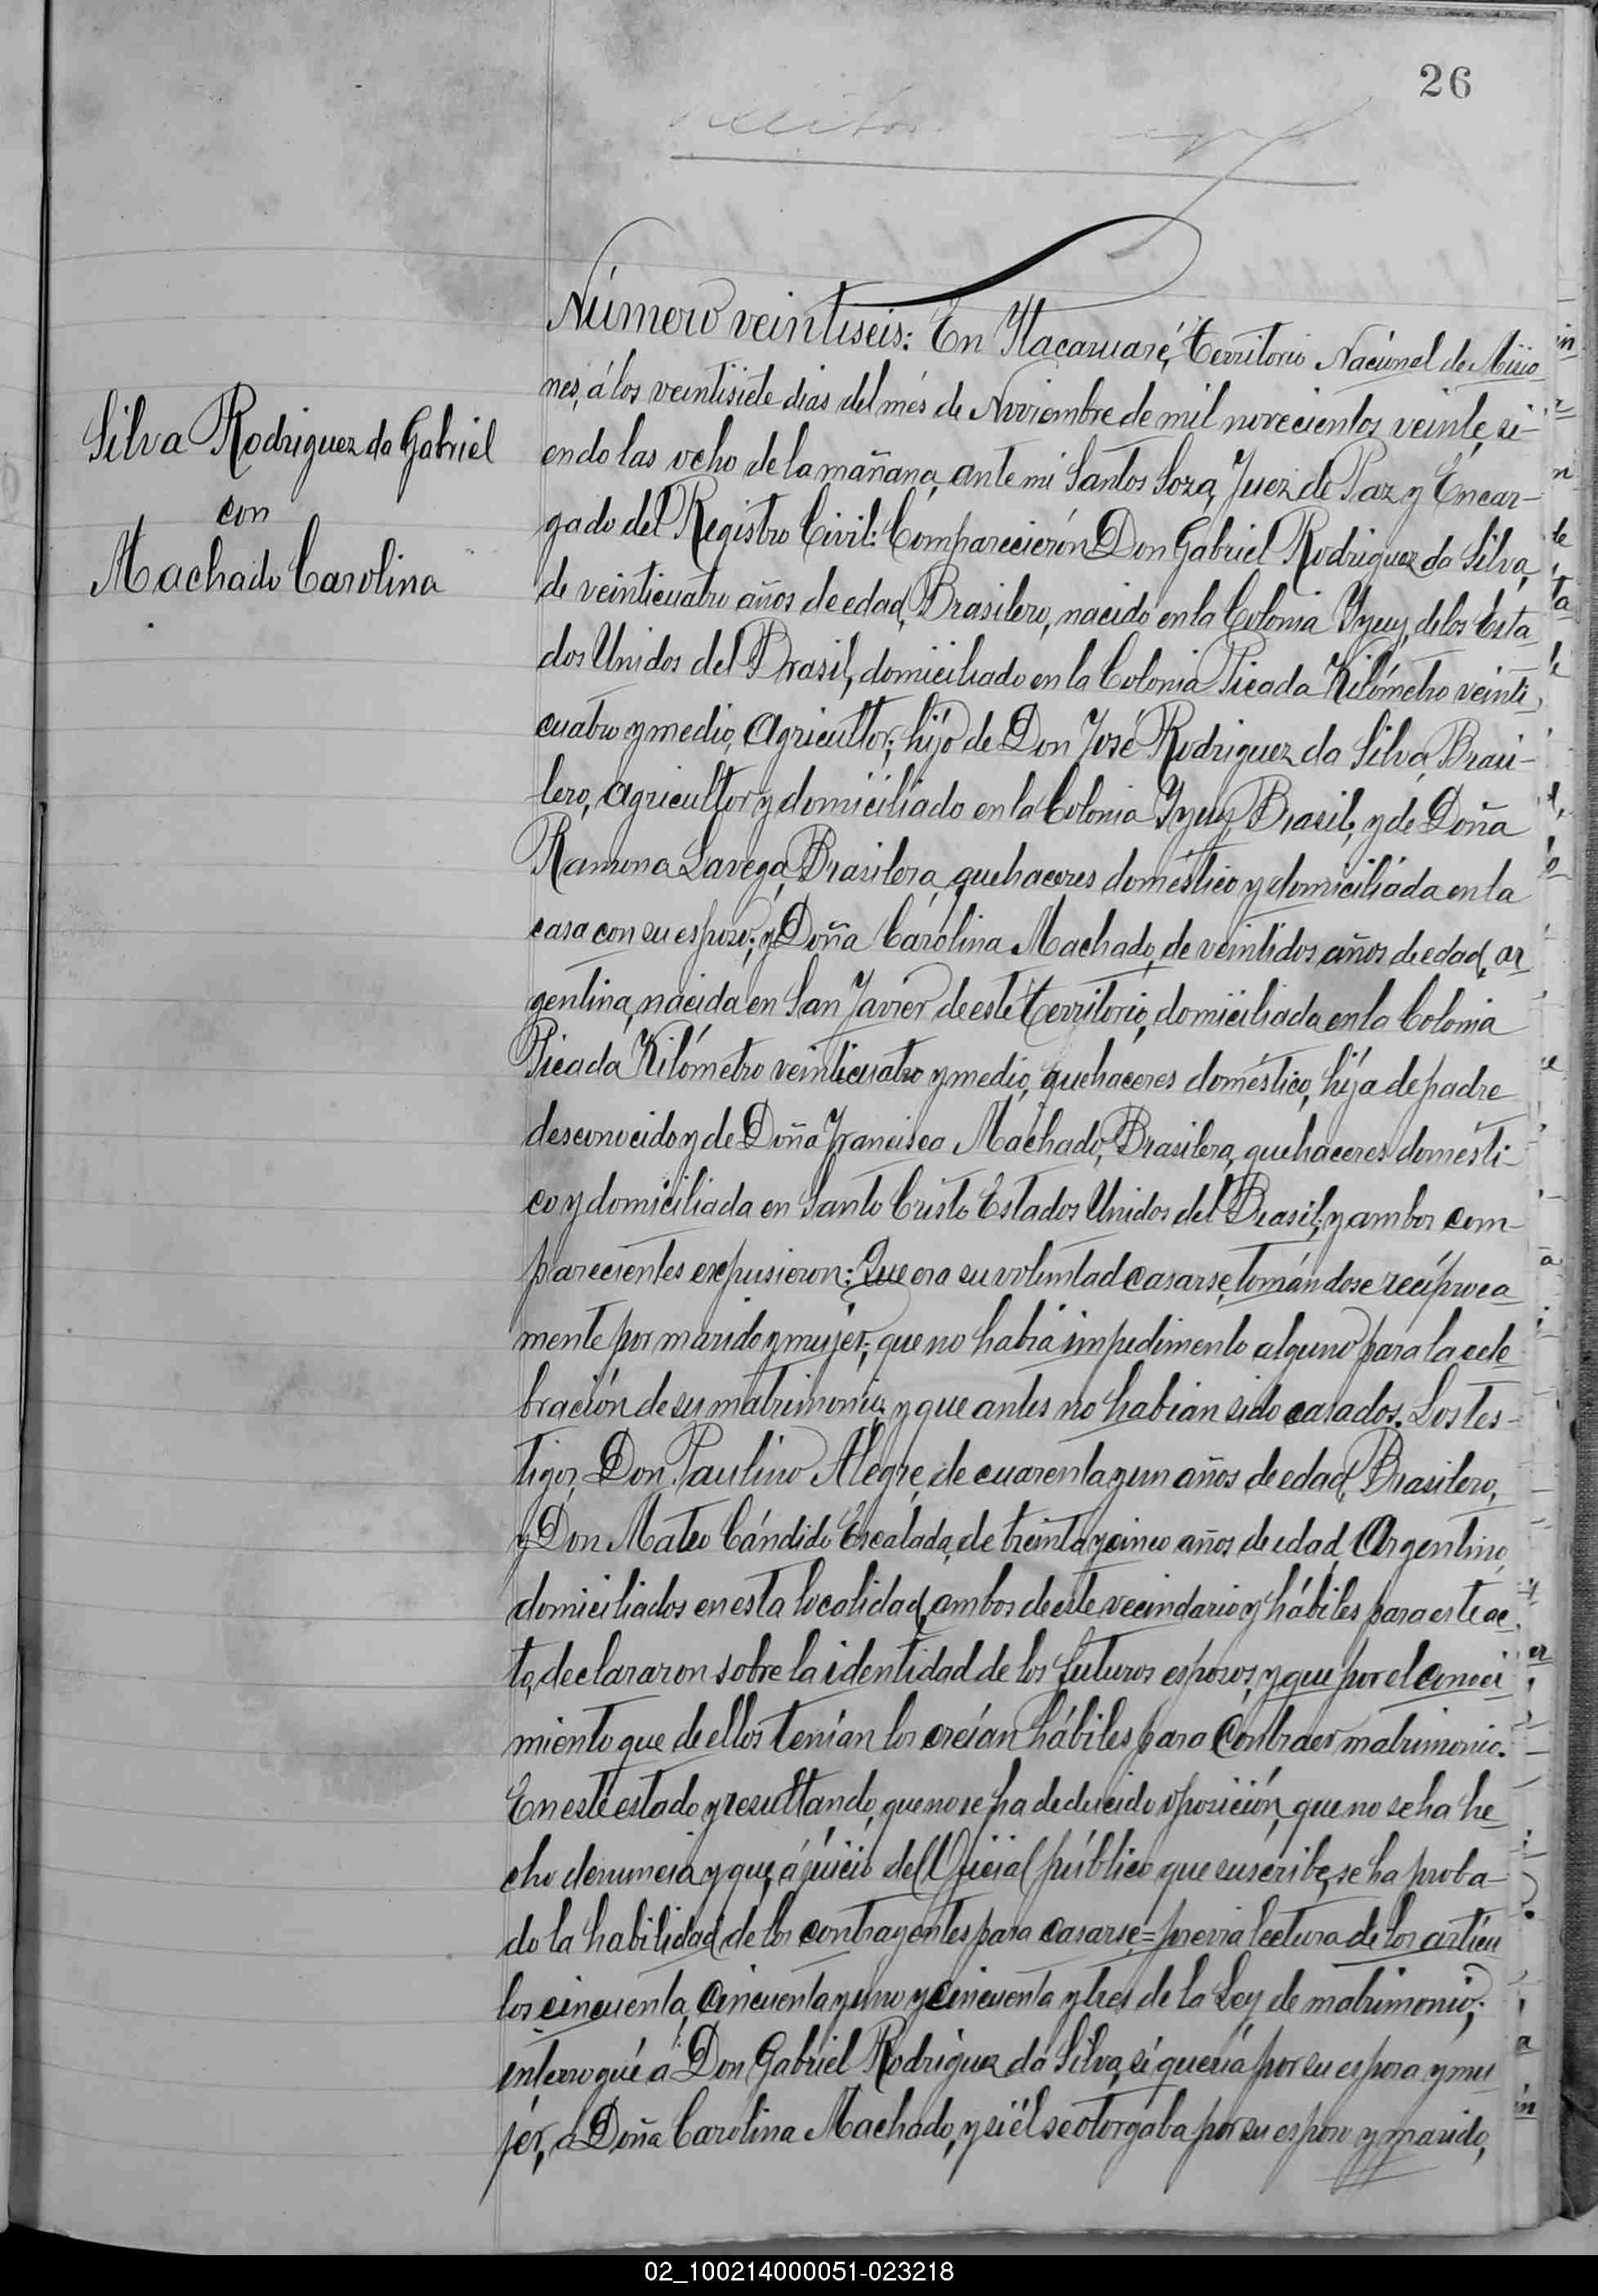 26
Silva Rodriguez da Gabriel
con
Machado Carolina
Número veintiseis: En Itacaruaré, Territorio Nacional de Misio
nes, á los veintisiete dias del més de Noviembre de mil novecientos veinte, si-
endo las ocho de la mañana, ante mi Santos Soza, Juez de Paz y Encar-
gado del Registro Civil: Comparecierón Don Gabriel Rodriguez da Silva,
de veinticuatro años de edad, Brasilero, nacido en la Colonia Yjuy, de los Esta
dos Unidos del Brasil, domiciliado en la Colonia Picada Kilómetro veinti
cuatro y medio, Agricultor; hijo de Don José Rodriguez da Silva, Brasi-
lero, agricultor y domiciliado en la Colonia Yjuy, Brasil, y de Doña
Ramona Lavega, Brasilera, quehaceres doméstico y domiciliada en la
casa con su esposo; y Doña Carolina Machado, de veintidos años de edad, ar
gentina, nacida en San Javier de este territorio, domiciliada en la Colonia
Picada Kilómetro veinticuatro y medio, quehaceres doméstico, hija de padre
desconocido y de Doña Francisca Machado, Brasilera, quehaceres domésti-
co y domiciliada en Santo Cristo Estados Unidos del Brasil; y ambos com-
parecientes expusieron: Que era su voluntad casarse, tomándose recíproca
mente por marido y mujer; que no habia impedimento alguno para la cele
bración de su matrimonio y que antes no habian sido casados. Los tes-
tigos, Don Paulino Alegre, de cuarenta y un años de edad, Brasilero,
y Don Mateo Cándido Escalada, de treinta y cinco años de edad, Argentino,
domiciliados en esta localidad, ambos de este vecindario y hábiles para este ac
to, declararon sobre la identidad de los futuros esposos, y que por el conoci
miento que de ellos tenian los creian hábiles para Contraer matrimonio.
En este estado y resultando, que no se ha deducido oposición, que no se ha he
cho denuncia y que, á juicio del Oficial público que suscribe, se ha proba-
do la habilidad de los contrayentes para casarse = previa lectura de los articu
los cincuenta, Cincuenta y uno y cincuenta y tres de la Ley de matrimonio;
interrogué á Don Gabriel Rodriguez da Silva, si queria por su esposa y mu
jer, á Doña Carolina Machado, y si él se otorgaba por su esposo y marido,
02_100214000051-023218